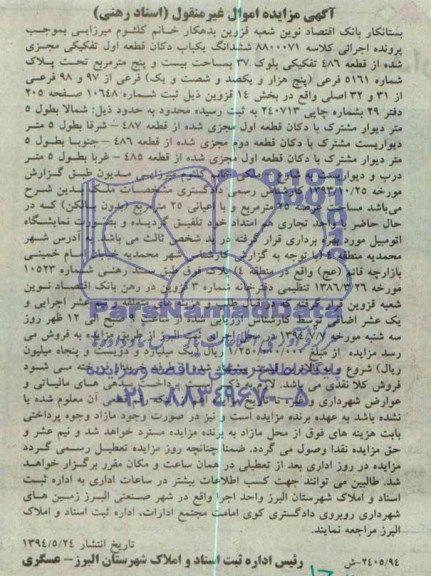 آگهی مزایده اموال غیر منقول (اسناد رهنی)
بستانکار بانک اقتصاد نوین شعبه قزوین بدهکار خانم کلثوم میرزایی بموجب
پرونده اجرائی کلاسه ۸۸۰۰۰۷۱ ششدانگ یکباب دکان قطعه اول تفکیکی مجزی
شده از قطعه ۴۸۶ تفکیکی بلوک ۳۷ بمساحت بیست و پنج مترمربع تحت پلاک
شماره ۵۱۶۱ فرعی (پنج هزار و یکصد و شصت و یک) فرعی از ۹۷ و ۹۸ فرعی
از ۳۱ و ۳۲ اصلی واقع در بخش ۱۴ قزوین ذیل ثبت شماره ۱۰۶۴۸ صفحه ۲۰۵
دفتر ۲۹ بشماره چاپی ۲۴۰۷۱۳ به ثبت رسیده محدود به حدود ذیل: شمالا بطول ۵
متر دیوار مشترک با دکان قطعه اول مجزی شده از قطعه ۴۸۷ - شرقا بطول ۵ متر
دیواریست مشترک با دکان قطعه دوم مجزی شده از قطعه ۴۸۶ - جنوبا بطول ۵
متر دیوار مشترک با دکان قطعه اول مجزی شده از قطعه ۴۸۵ - غربا بطول ۵ متر
درب و دیوار خانم کلثوم میرزایی مدیون طبق گزارش
مورخه ۱۳۹۳/۱۰/۲۵ کارشناس رسمی دادگستری مشخصات بدین شرح
می‌باشد ۲۵ مترمربع و با اعیانی ۲۵ مترمربع (بدون سالکن) که در
حال حاضر با واحد تجاری هم امتداد خود تلفیق گردیده و بصورت نمایشگاه
اتومبیل مورد بهره برداری قرار گرفته در ید شخص ثالث می باشد. به آدرس شهر
محمدیه منطقه (با توجه به گزارش کارشناس) شهر محمدیه خیابان امام خمینی
بازارچه قائم (عج) واقع در منطقه ۴ پلاک فوق طبق سند رهنی شماره ۱۰۵۲۳
مورخه ۱۳۸۶/۳/۲۹ تنظیمی دفترخانه شماره ۳ قزوین در رهن بانک اقتصاد نوین
شعبه قزوین قرار گرفته که در قبال طلب و هزینه های متعلقه و حق عشر اجرایی و
یک عشر اضافی کارشناس ارزیابی صبح الی ۱۲ ظهر روز
سه شنبه مورخه در محل اجرای ثبت البرز از طریق مزایده به فروش می
رسد مزایده از مبلغ ۱/۲۵۰/۰۰۰/۰۰۰ ریال (یک میلیارد و دویست و پنجاه میلیون
ریال) شروع و به بالاترین قیمت پیشنهادی فروخته می شود
فروش کلا نقدی می باشد. لازم به ذکر است پرداخت بدهی های مالیاتی و
عوارض شهرداری و تا تاریخ قطعی آن معلوم شده یا
نشده باشد به عهده برنده مزایده است و نیز در صورت وجود مازاد وجوه پرداختی
بابت هزینه های فوق از محل مازاد به برنده مزایده مسترد خواهد شد و نیم عشر و
حق مزایده نقدا وصول می گردد. ضمنا چنانچه روز مزایده تعطیل رسمی گردد
مزایده در روز اداری بعد از تعطیلی در همان ساعت و مکان مقرر برگزار خواهد
شد. طالبین می توانند جهت کسب اطلاعات بیشتر در ساعات اداری به اداره ثبت
اسناد و املاک شهرستان البرز واحد اجرا واقع در شهر صنعتی البرز زمین های
شهرداری روبروی دادگستری کوی امامت مجتمع ادارات، اداره ثبت اسناد و املاک
البرز مراجعه نمایند.
تاریخ انتشار ۱۳۹۴/۵/۲۴
۲۴۰۵/۹۴-ش رئیس اداره ثبت اسناد و املاک شهرستان البرز- عسگری
ParsNamadData
پایگاه اطلاع رسانی مناقصه و مزایده
۰۲۱-۸۸۳۴۹۶۷۰-۵